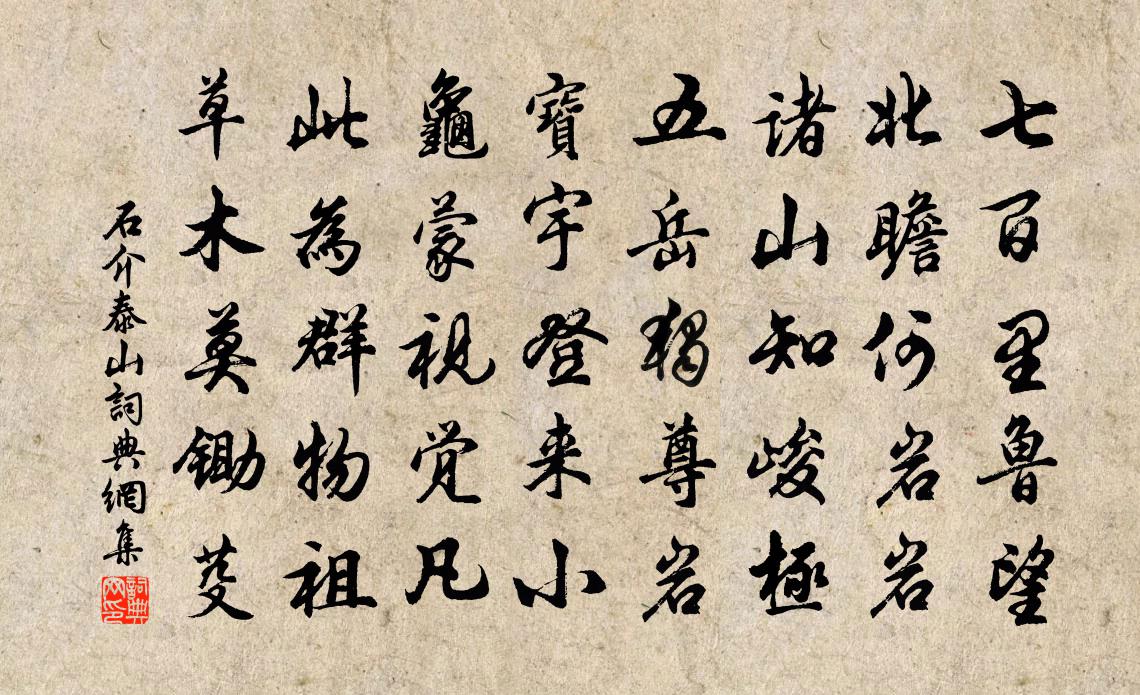 七百里魯望
北瞻何岩岩
諸山知峻極
五岳獨尊岩
寶宇登来小
龜蒙視覺凡
此為群物祖
草木莫鋤芟
石介泰山詞典網集
詞典网印